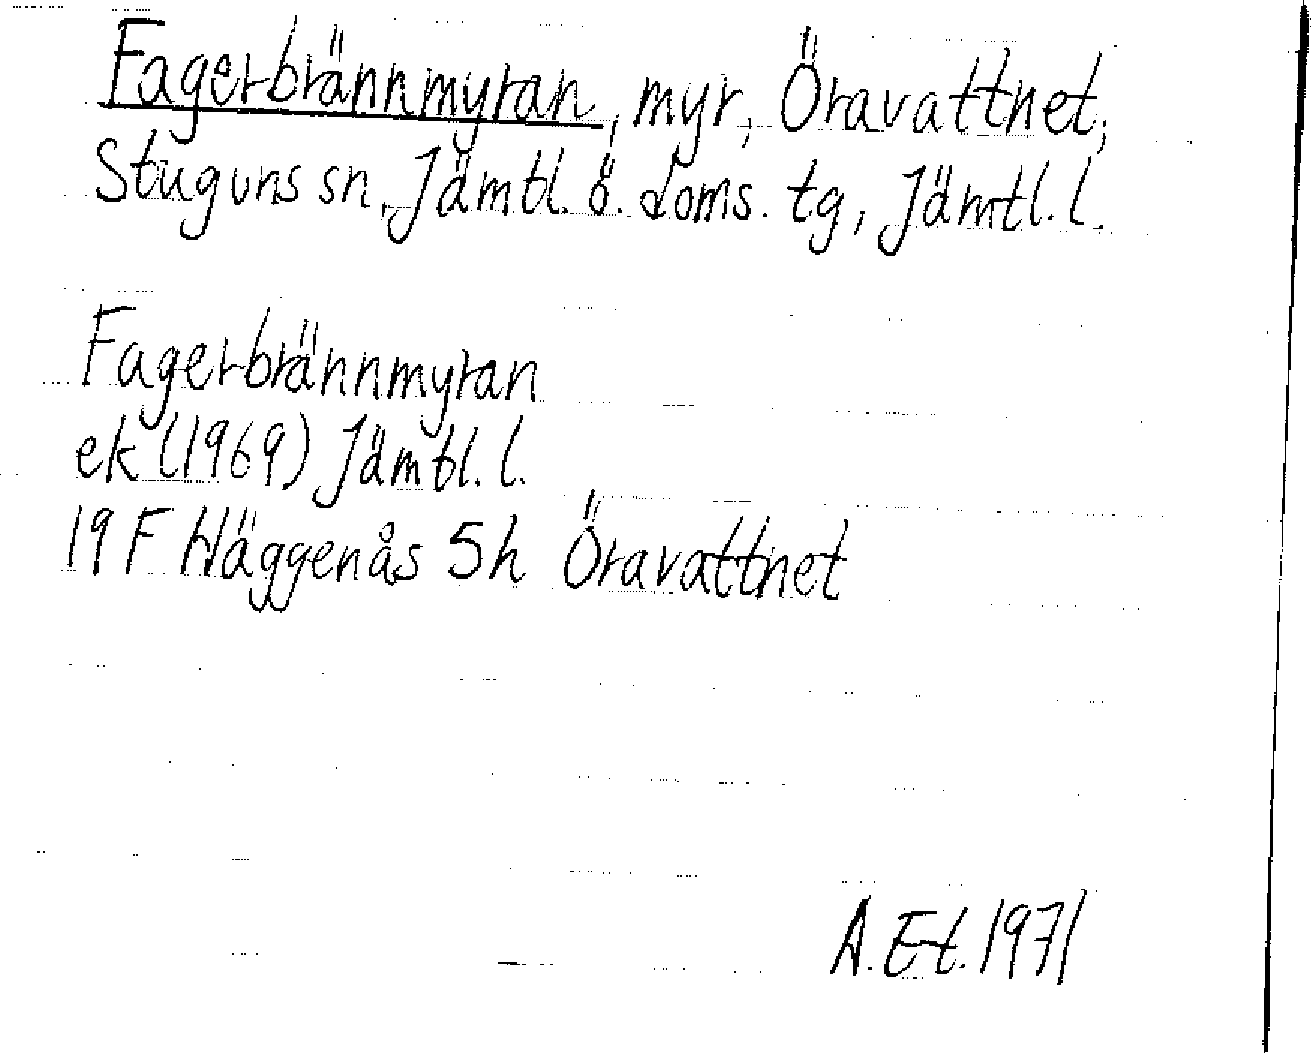 Fagerbrännmyran, myr, Öravattnet,
Stuguns sn, Jämtl. ö. doms. tg, Jämtl. l.
Fagerbrännmyran
ek (1969) Jämtl. l.
19 F Häggenås 5h Öravattnet
A. Et. 1971